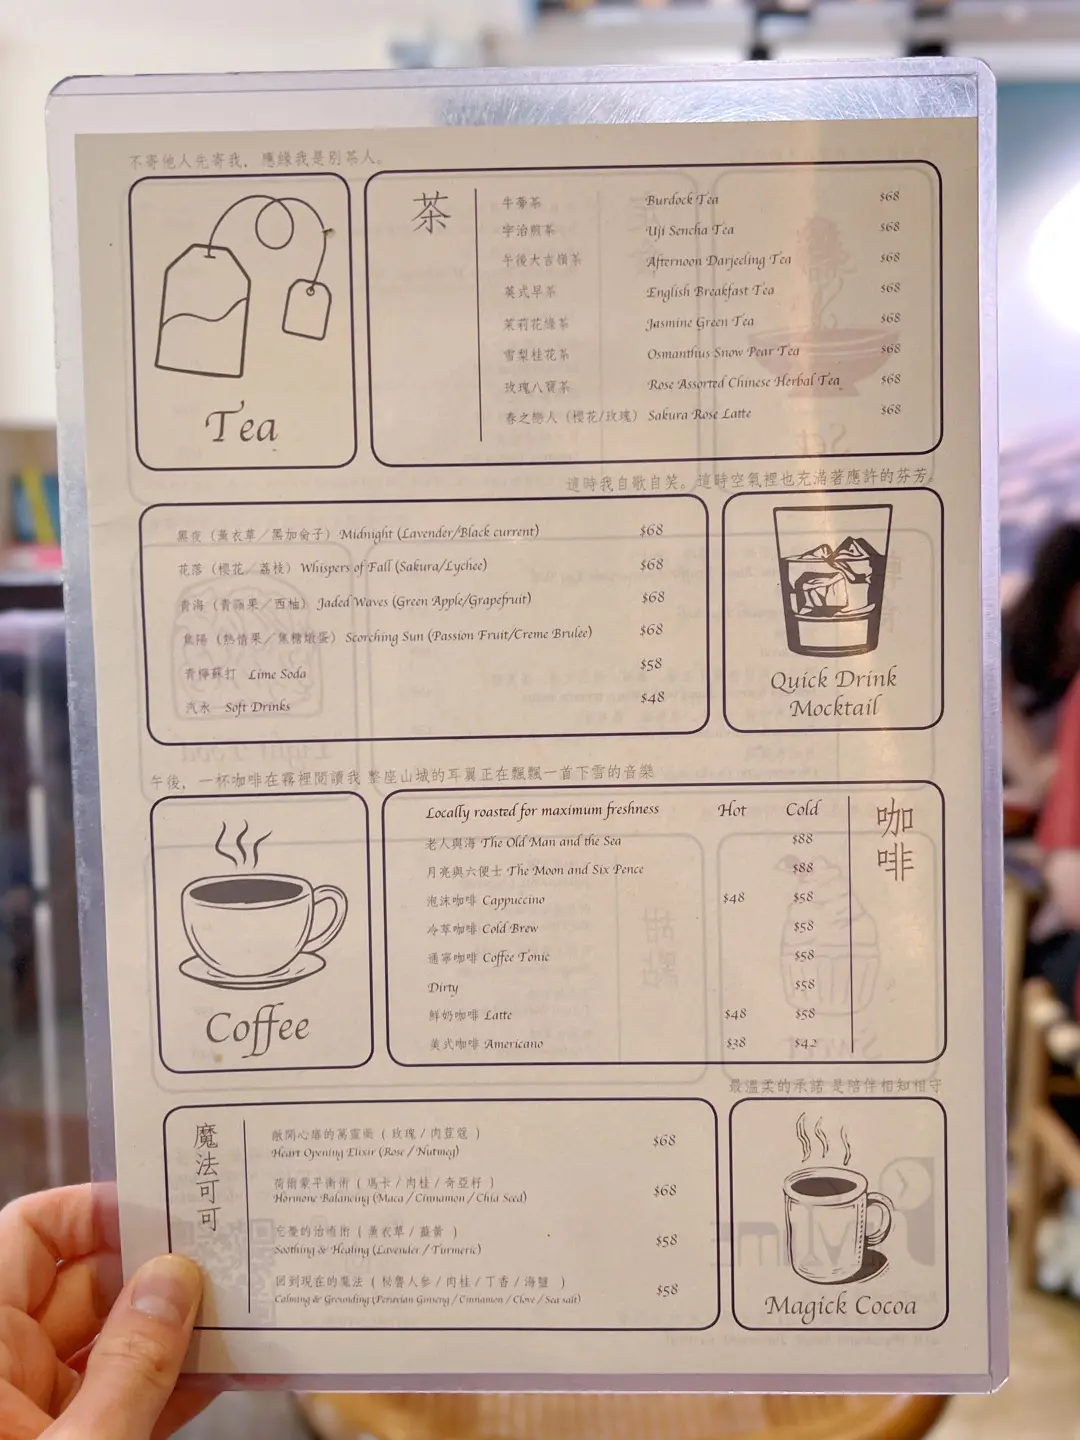 不寄他人先寄我，應緣我是別茶人。
Tea
茶
牛蒡茶 Burdock Tea $68
宇治煎茶 Uji Sencha Tea $68
午後大吉嶺茶 Afternoon Darjeeling Tea $68
英式早茶 English Breakfast Tea $68
茉莉花綠茶 Jasmine Green Tea $68
雪梨桂花茶 Osmanthus Snow Pear Tea $68
玫瑰八寶茶 Rose Assorted Chinese Herbal Tea $68
春之戀人（櫻花/玫瑰） Sakura Rose Latte $68
這時我自歌自笑。這時空氣裡也充滿著應許的芬芳。
黑夜（薰衣草／黑加侖子）Midnight (Lavender/Black current) $68
花落（櫻花／荔枝）Whispers of Fall (Sakura/Lychee) $68
青海（青蘋果／西柚）Jaded Waves (Green Apple/Grapefruit) $68
焦陽（熱情果／焦糖燉蛋）Scorching Sun (Passion Fruit/Creme Brulee) $68
青檸蘇打 Lime Soda $58
汽水 Soft Drinks $48
Quick Drink
Mocktail
午後，一杯咖啡在霧裡閱讀我 整座山城的耳翼正在飄飄一首下雪的音樂
Coffee
Locally roasted for maximum freshness Hot Cold
老人與海 The Old Man and the Sea $88
月亮與六便士 The Moon and Six Pence $88
泡沫咖啡 Cappuccino $48 $58
冷萃咖啡 Cold Brew $58
通寧咖啡 Coffee Tonic $58
Dirty $58
鮮奶咖啡 Latte $48 $58
美式咖啡 Americano $38 $42
咖啡
最溫柔的承諾 是陪伴相知相守
魔法可可
敞開心扉的萬靈藥（玫瑰/肉荳蔻） $68
Heart Opening Elixir (Rose / Nutmeg)
荷爾蒙平衡術（瑪卡/肉桂/奇亞籽） $68
Hormone Balancing (Maca / Cinnamon / Chia Seed)
的治癒術（薰衣草/薑黃） $58
Soothing & Healing (Lavender / Turmeric)
回到現在的魔法（秘魯人參/肉桂/丁香/海鹽） $58
Calming & Grounding (Peruvian Ginseng / Cinnamon / Clove / Sea salt)
Magick Cocoa